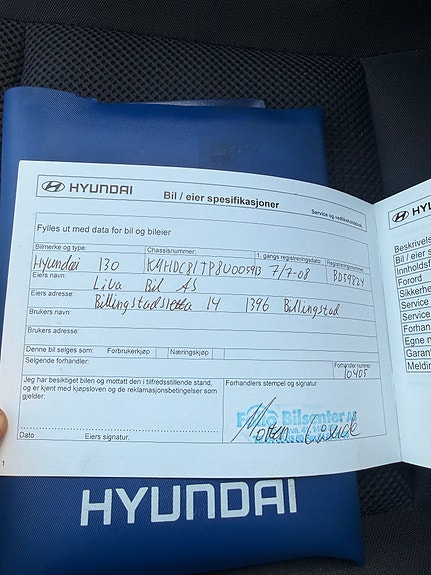 HYUNDAI
Bil / eier spesifikasjoner
Service og vedlikeholdsbok
Fylles ut med data for bil og bileier
Bilmerke og type: Chassisnummer: 1. gangs registreringsdato: Registreringsnummer:
Hyundai I30 KMHDC81TP8U005913 7/7-08 BD59824
Eiers navn:
Liva Bil AS
Eiers adresse:
Billingstadsletta 14 1396 Billingstad
Brukers navn:
Brukers adresse:
Denne bil selges som: Forbrukerkjøp Næringskjøp
Selgende forhandler: Forhandler nummer:
10405
Jeg har besiktiget bilen og mottatt den i tilfredsstillende stand,
og er kjent med kjøpsloven og de reklamasjonsbetingelser som
gjelder:
Forhandlers stempel og signatur
Bilsenter
Morten
Dato Eiers signatur.
1
HYUNDAI
Beskrivels
Bil / eier s
Innholdsf
Forord
Sikkerhe
Service
Service
Forhan
Egne n
Garan
Meldin
HYUNDAI